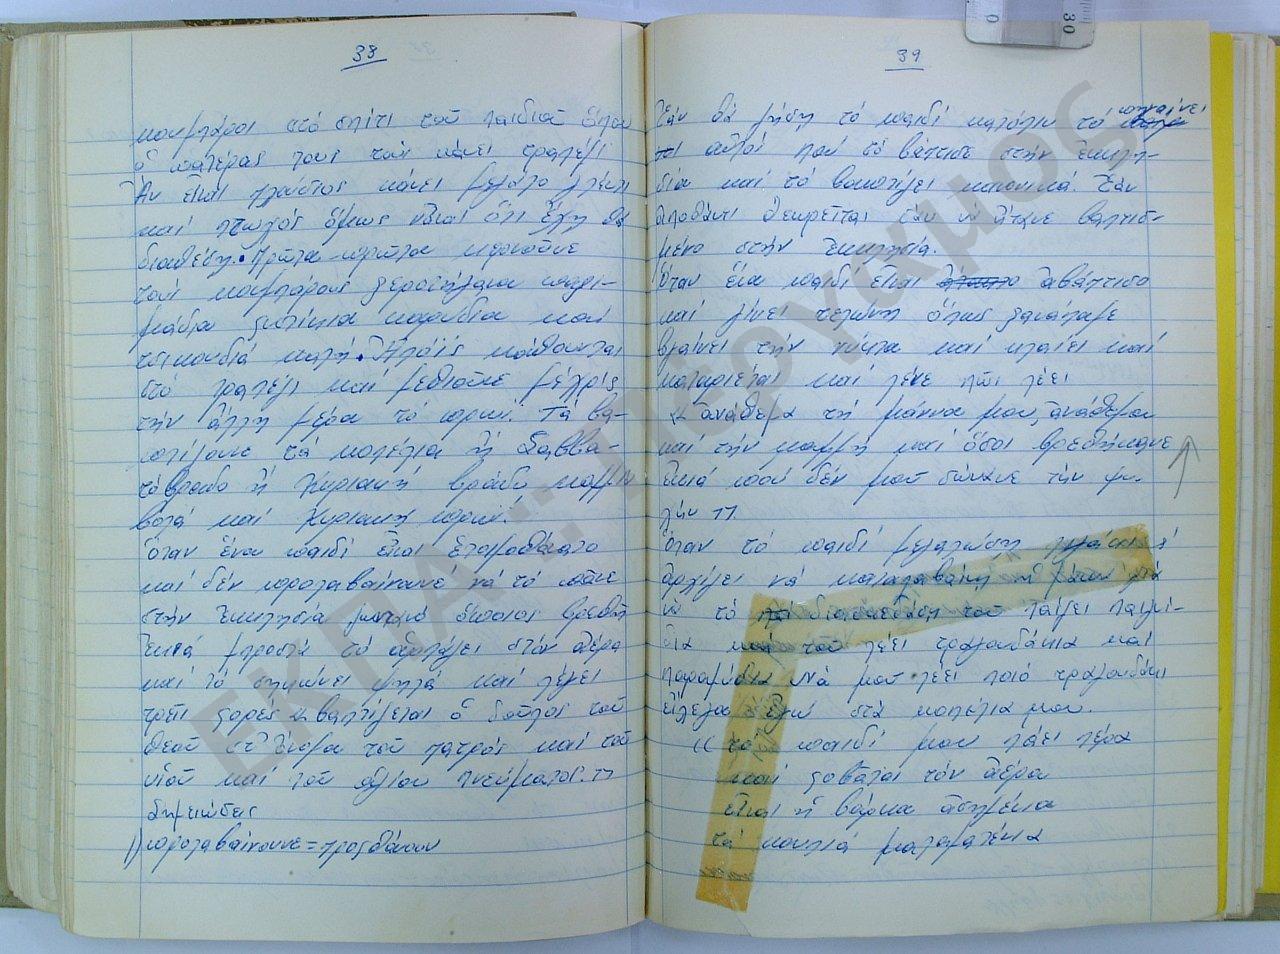 38
κουμπάροι στό σπίτι τοῦ παιδιοῦ ὅπου
ὁ πατέρας τους τούς κάνει τραπέζι
Ἄν εἶναι πλούσιος κάνει μεγάλο γλέντι
καί πτωχός ὅμως κάνει ὅτι ἔχη
διαθέση. Πρῶτα-πρῶτα κερνοῦνε
τούς κουμπάρους ξεροτήγανα παξι-
μάδια καρύδια καί
τσικουδιά καλή. κάθουνται
στό τραπέζι καί μεθιοῦνε μέχρις
τήν ἄλλη μέρα τό πρωί. Τά βα-
φτίζουνε τά κοπέλια ἤ Σαββα-
τόβραδο ἤ Κυριακή βράδυ καμμιά
βολά καί Κυριακή πρωί.
Ὅταν ἕνα παιδί εἶναι ἑτοιμοθάνατο
καί δέν προλαβαίνουνε νά τό πᾶνε
στήν Ἐκκλησία ὅποιος βρεθῆ
ἐκειά μπροστά τό ἁρπάζει στόν ἀέρα
καί τό σηκώνει ψηλά καί λέγει
τρεῖς φορές « βαπτίζεται ὁ δοῦλος τοῦ
Θεοῦ στ' ὄνομα τοῦ πατρός καί τοῦ
υἱοῦ καί τοῦ ἁγίου πνεύματος."
Σημειώσεις
1) προλαβαίνουνε = προφθάνουν
39
Ἐάν θά ζήση τό παιδί κατόπιν τό πηγαίνει
αὐτός πού τό βάπτισε στήν Ἐκκλη-
σία καί τό βαπτίζει κανονικά. Ἐάν
ἀποθάνει θεωρεῖται ἐάν νά ἤτανε βαπτισ-
μένο στήν Ἐκκλησία.
Ὅταν ἕνα παιδί εἶναι ἀβάπτιστο
καί γίνει τελώνη ὅπως
βγαίνει τήν νύκτα καί κλαίει καί
καταριέται καί λένε πώς λέει
« ἀνάθεμα τή μάννα μου, ἀνάθεμα
καί τήν μαμμή καί ὅσοι βρεθήκανε
ἐκειά πού δέν μοῦ δώκανε τήν ψυ-
χήν "
Ὅταν τό παιδί μεγαλώση
ἀρχίζει νά καταλαβαίνη ἡ μάννα γιά
νά τό διασκεδάση τοῦ παίζει παιγνί-
δια καί τοῦ λέει τραγουδάκια καί
παραμύθια νά μου λέει ποιό τραγουδάκι
εἴλεγα ἐγώ στά κοπέλια μου.
« τό παιδί μου πάει πέρα
καί φοβᾶται τόν ἀέρα
εἶναι ἡ βάρκα ἀσημένια
τά κουπιά μαλαματένια
ΕΚΠΑ:: Πεογάμος